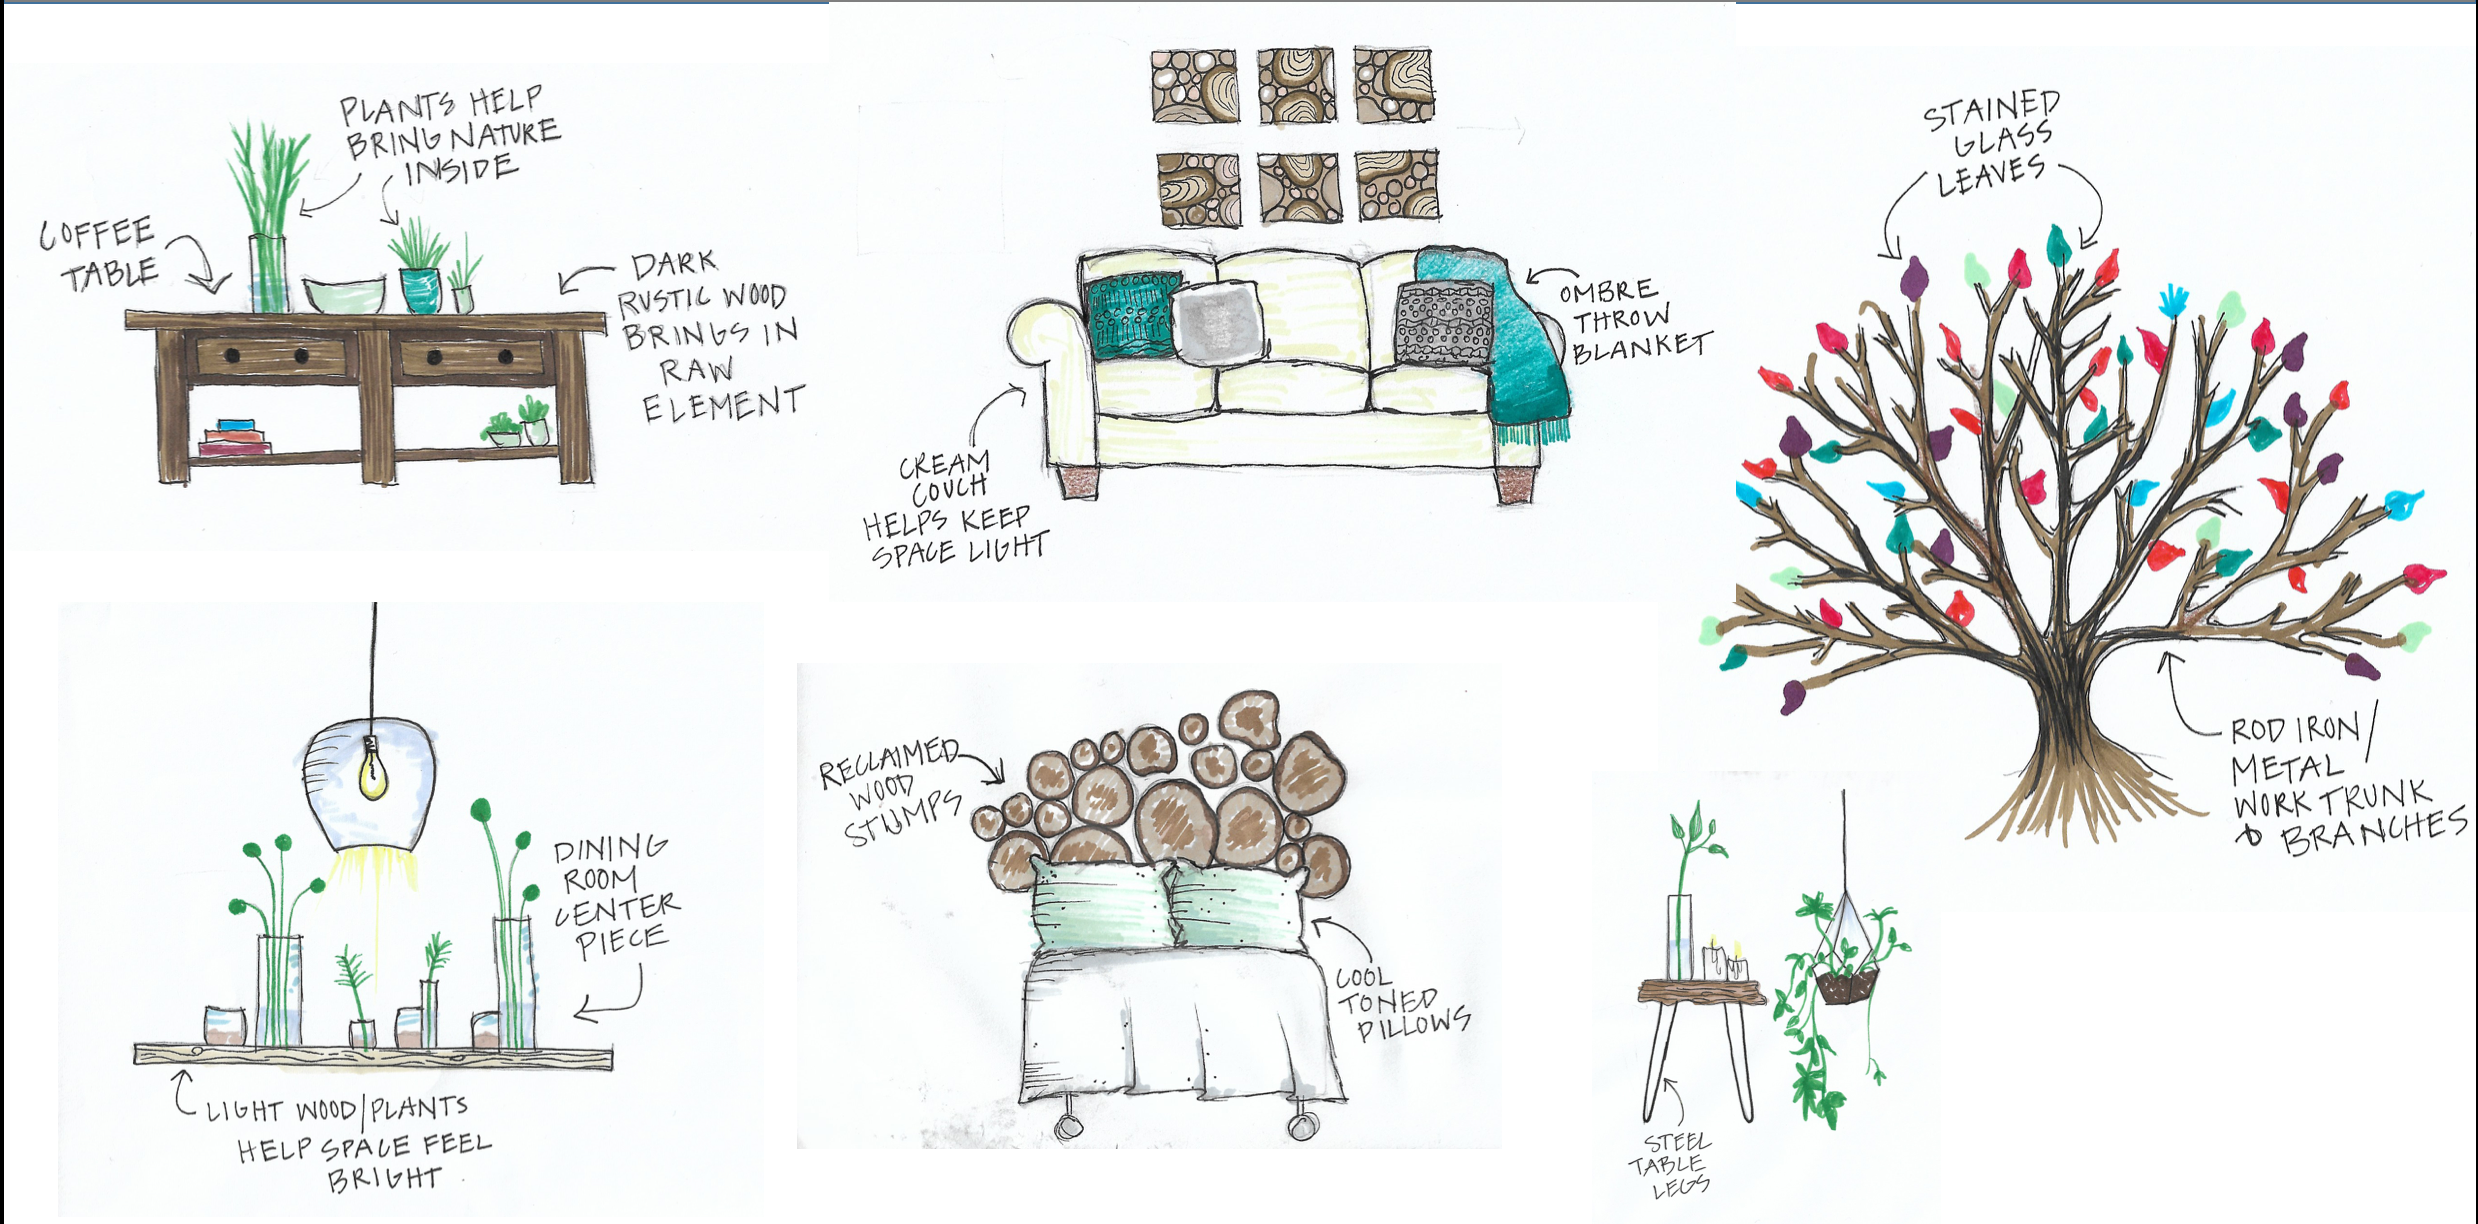 PLANTS HELP
BRING NATURE
INSIDE
COFFEE
TABLE
DARK
RUSTIC WOOD
BRINGS IN
RAW
ELEMENT
OMBRE
THROW
BLANKET
CREAM
COUCH
HELPS KEEP
SPACE LIGHT
STAINED
GLASS
LEAVES
ROD IRON/
METAL
WORK TRUNK
& BRANCHES
DINING
ROOM
CENTER
PIECE
LIGHT WOOD/PLANTS
HELP SPACE FEEL
BRIGHT
RECLAIMED
WOOD
STUMPS
COOL
TONED
PILLOWS
STEEL
TABLE
LEGS